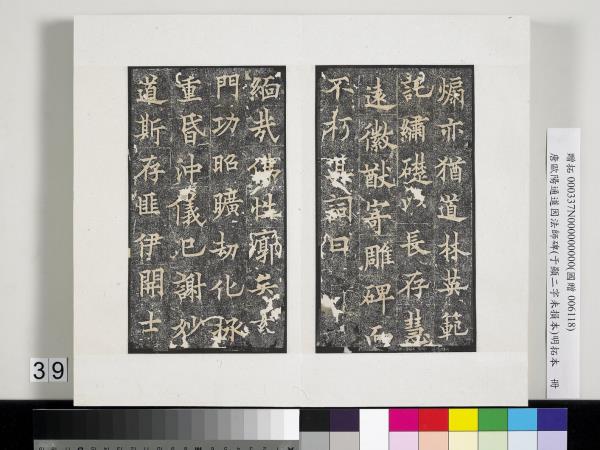 煸亦猶道林英範
託繡礎以長存慧
遠徽猷寄雕碑而
不朽其詞曰
緬哉佛性廓矣玄
門功昭曠劫化拯
重昏沖儀已謝妙
道斯存匪伊開士
贈拓 000337N000000000(國贈 006118)
唐歐陽通道因法師碑(于顯二字未損本)明拓本 冊
39